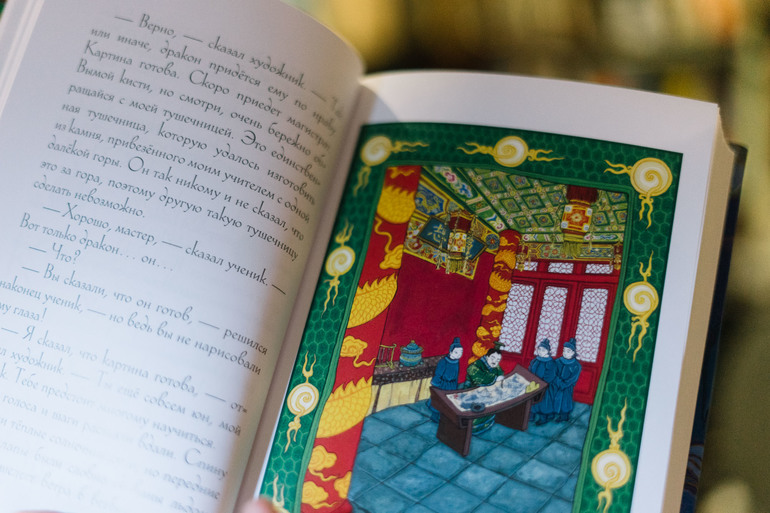 — Верно, — сказал художник. — Так
или иначе, дракон придётся ему по нраву.
Картина готова. Скоро приедет магистрат.
Вымой кисти, но смотри, очень бережно об-
ращайся с моей тушечницей. Это единствен-
ная тушечница, которую удалось изготовить
из камня, привезённого моим учителем с одной
далёкой горы. Он так никому и не сказал, что
это за гора, поэтому другую такую тушечницу
сделать невозможно.
— Хорошо, мастер, — сказал ученик. —
Вот только дракон... он...
— Что?
— Вы сказали, что он готов, — решился
наконец ученик, — но ведь вы не нарисовали
му глаза!
— Я сказал, что картина готова, — от-
художник. — Ты ещё совсем юн, мой
к. Тебе предстоит многому научиться.
голоса и шаги вдали. Спину
тёплые